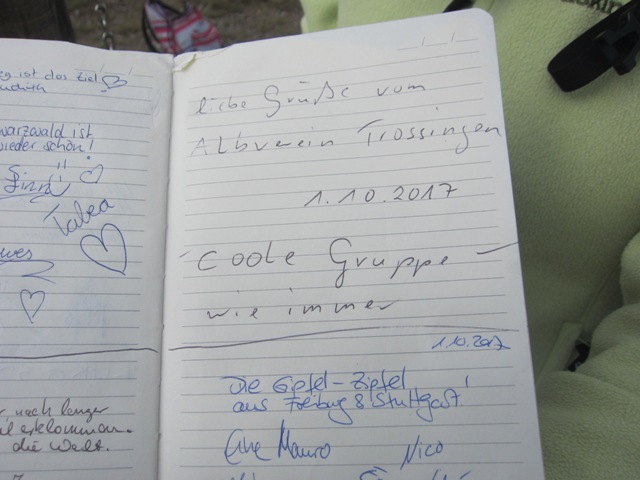 ist das Ziel
warzwald ist
wieder schön!
Finn
Tabea
r nach langer
erklommen.
die Welt.
liebe Grüße vom
Albverein Trossingen
1.10.2017
- coole Gruppe -
wie immer
1.10.2017
Die Gipfel-Zipfel
aus Freiburg & Stuttgart!
Eure Mauro Nico